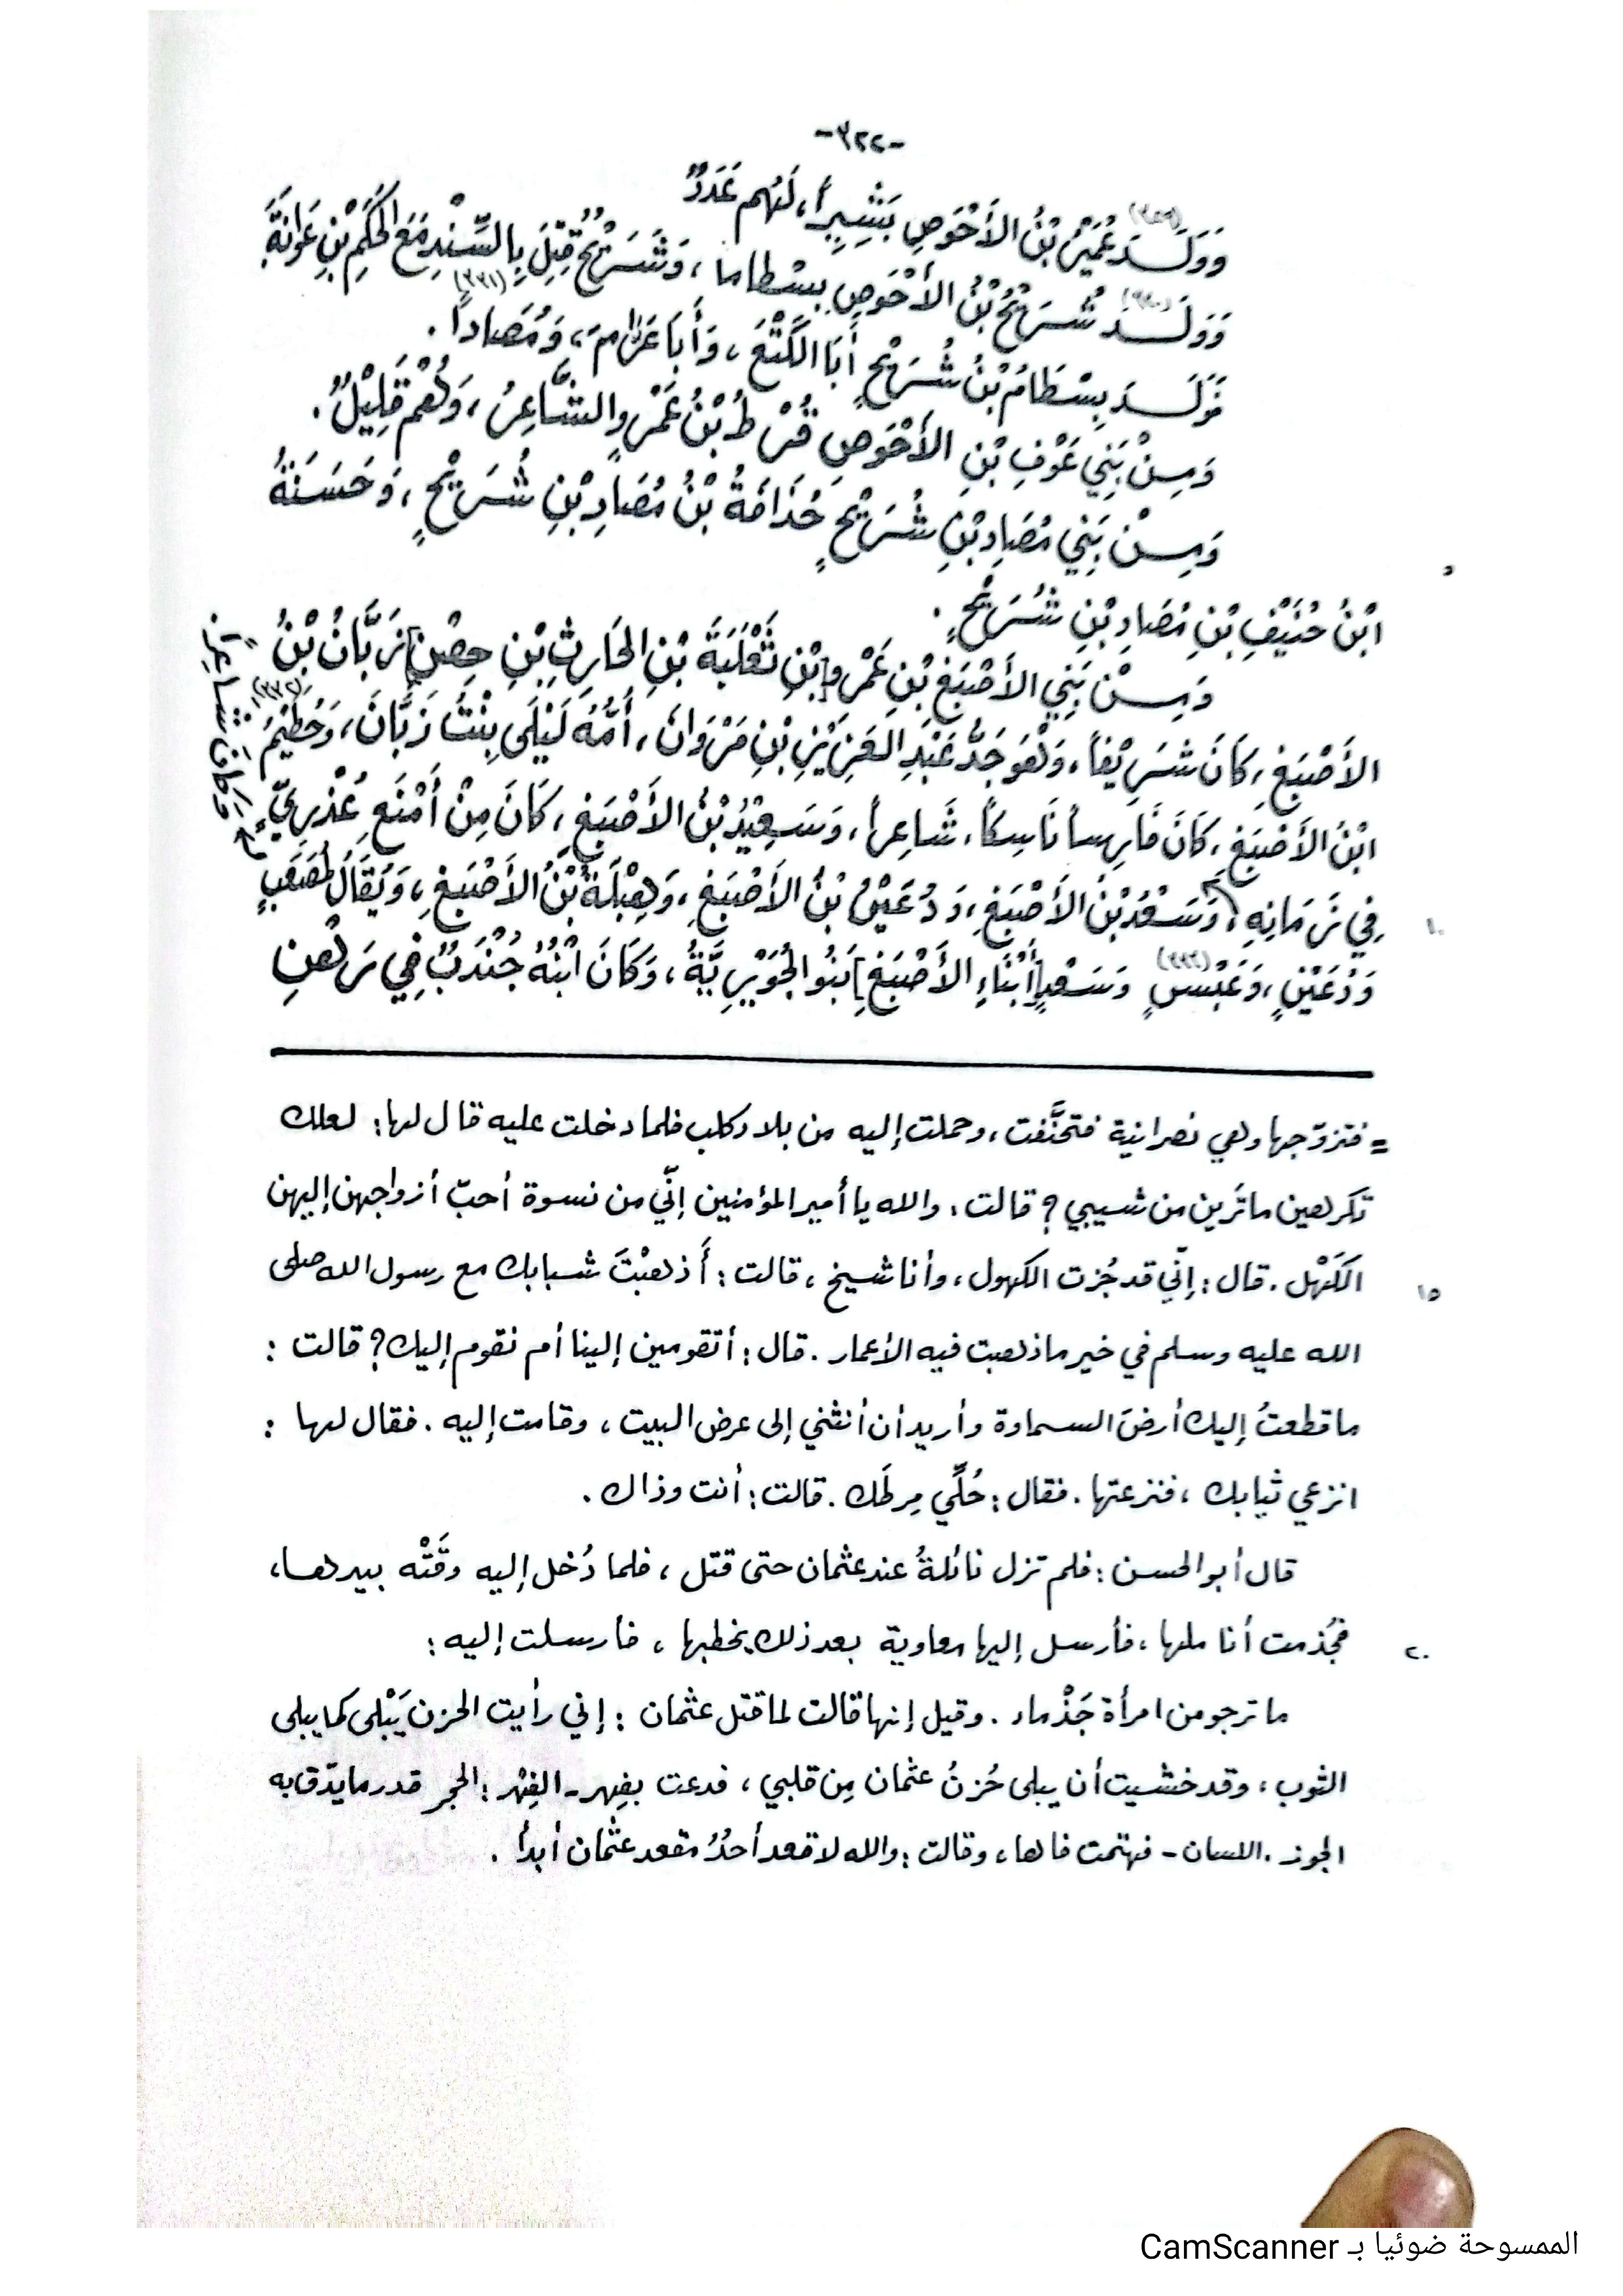 -٣٢٢-
وَوَلَدَ عُمَيْرُ بْنُ الأَحْوَصِ بَشِيراً، لَهُم عَدَدٌ
وَوَلَدَ شُرَيْحُ بْنُ الأَحْوَصِ بِسْطاماً، وَشُرَيْحٌ قُتِلَ بِالسِّنْدِ مَعَ الحَكَمِ بْنِ عَوَانَةَ
فَوَلَدَ بِسْطَامُ بْنُ شُرَيْحٍ أَبَا الكَنْعَ، وَأَبَا عَرَامَ، وَمُصَاداً.
وَمِنْ بَنِي عَوْفِ بْنِ الأَحْوَصِ قُرْطُ بْنُ عَمْرٍو الشَّاعِرُ، وَهُمْ قَلِيْلٌ.
وَمِنْ بَنِي مُصَادِ بْنِ شُرَيْحٍ حُذَافَةُ بْنُ مُصَادِ بْنِ شُرَيْحٍ، وَحَسَنَةُ
ابْنُ حُنَيْفِ بْنِ مُصَادِ بْنِ شُرَيْحٍ.
٥
وَمِنْ بَنِي الأَصْبَغِ بْنِ عَمْرِو [بْنِ ثَعْلَبَةَ بْنِ الحَارِثِ بْنِ حِصْنٍ] زَبَّانُ بْنُ
الأَصْبَغِ، كَانَ شَرِيْفاً، وَهُوَ جَدُّ عَبْدِ العَزِيْزِ بْنِ مَرْوَانَ، أُمُّهُ لَيْلَى بِنْتُ زَبَّانَ، وَحُطَيْمُ (٣٣٢)
ابْنُ الأَصْبَغِ، كَانَ فَارِساً نَاسِكاً، شَاعِراً، وَسَعِيْدُ بْنُ الأَصْبَغِ، كَانَ مِنْ أَمْنَعِ عُذْرِيٍّ
فِي زَمَانِهِ، وَسَعْدُ بْنُ الأَصْبَغِ، وَدُعَيْنُ بْنُ الأَصْبَغِ، وَهِبْلَةُ بْنُ الأَصْبَغِ، وَيُقَالُ لِمُصْعَبٍ
١٠
وَدُعَيْنٍ، وَعَبْسٍ (٣٣٣) وَسَعْدٍ [أَبْنَاءِ الأَصْبَغِ] بَنُو الجُوَيْرِيَّةُ، وَكَانَ ابْنُهُ جُنْدَبٌ فِي رَهْنِ
وكان شاعراً
= فتزوّجها وهي نصرانية فتحنَّفت، وحملت إليه من بلاد كلب فلما دخلت عليه قال لها: لعلك
تكرهين ما تَرين من شيبي؟ قالت: والله يا أمير المؤمنين إنّي من نسوة أحبّ أزواجهن إليهن
الكَهْل. قال: إنّي قد جُزت الكهول، وأنا شيخ، قالت: أَذهبْتَ شبابك مع رسول الله صلى
١٥
الله عليه وسلم في خير ما ذهبت فيه الأعمار. قال: أتقومين إلينا أم نقوم إليك؟ قالت:
ما قطعتُ إليك أرضَ السماوة وأريد أن أنثني إلى عرض البيت، وقامت إليه. فقال لها:
انزعي ثيابك، فنزعتها. فقال: حُلِّي مِرطَك. قالت: أنت وذاك.
قال أبو الحسن: فلم تزل نائلةُ عند عثمان حتى قتل، فلما دُخل إليه وقَتْه بيدها،
فجُذمت أناملها، فأرسل إليها معاوية بعد ذلك يخطبها، فأرسلت إليه:
٢٠
ما ترجو من امرأة جَذْماء. وقيل إنها قالت لما قتل عثمان: إني رأيت الحزن يَبْلى كما يبلى
الثوب، وقد خشيت أن يبلى حُزنُ عثمان مِن قلبي، فدعت بفِهر - الفِهْر: الحجر قدر ما يدّق به
الجوز. اللسان - فهتمت فاها، وقالت: والله لا قعد أحدٌ مقعد عثمان أبداً.
الممسوحة ضوئيا بـ CamScanner